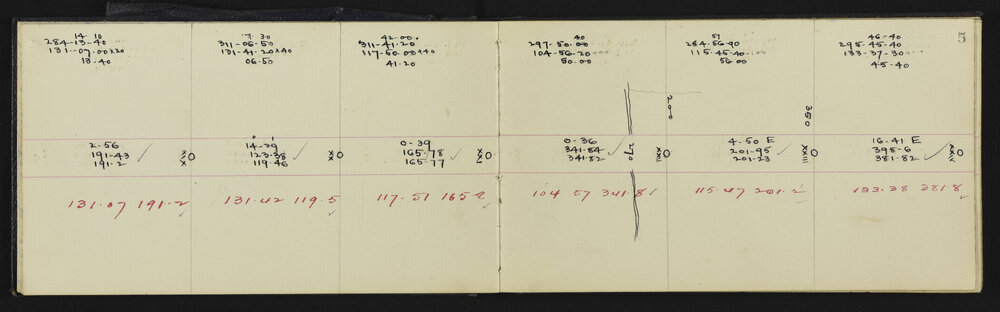 5
14 10
284-13-40
131-07.00
13-40
7 30
311-06.50
131-41-20
06.50
42.00
311-41.20
117-50.00
41.20
40
297-50.00
104-56-20
50.00
57
284.56.90
115-45.40
56.00
46-40
295.45.40
133-37-30
45-40
200
360
2-56
191-43
191.2
XIX
14-29
123.38
119.46
XX
0-39
165.78
165-77
XXI
0-36
341.84
341.82
270
XXII
4-50 E
201-95
201-23
XXIII
16.41 E
398-6
381.82
XXIV
131.07 191.2
131.42 119.5
117.51 165.8
104 57 341.8
115.47 201.2
133.38 381.8